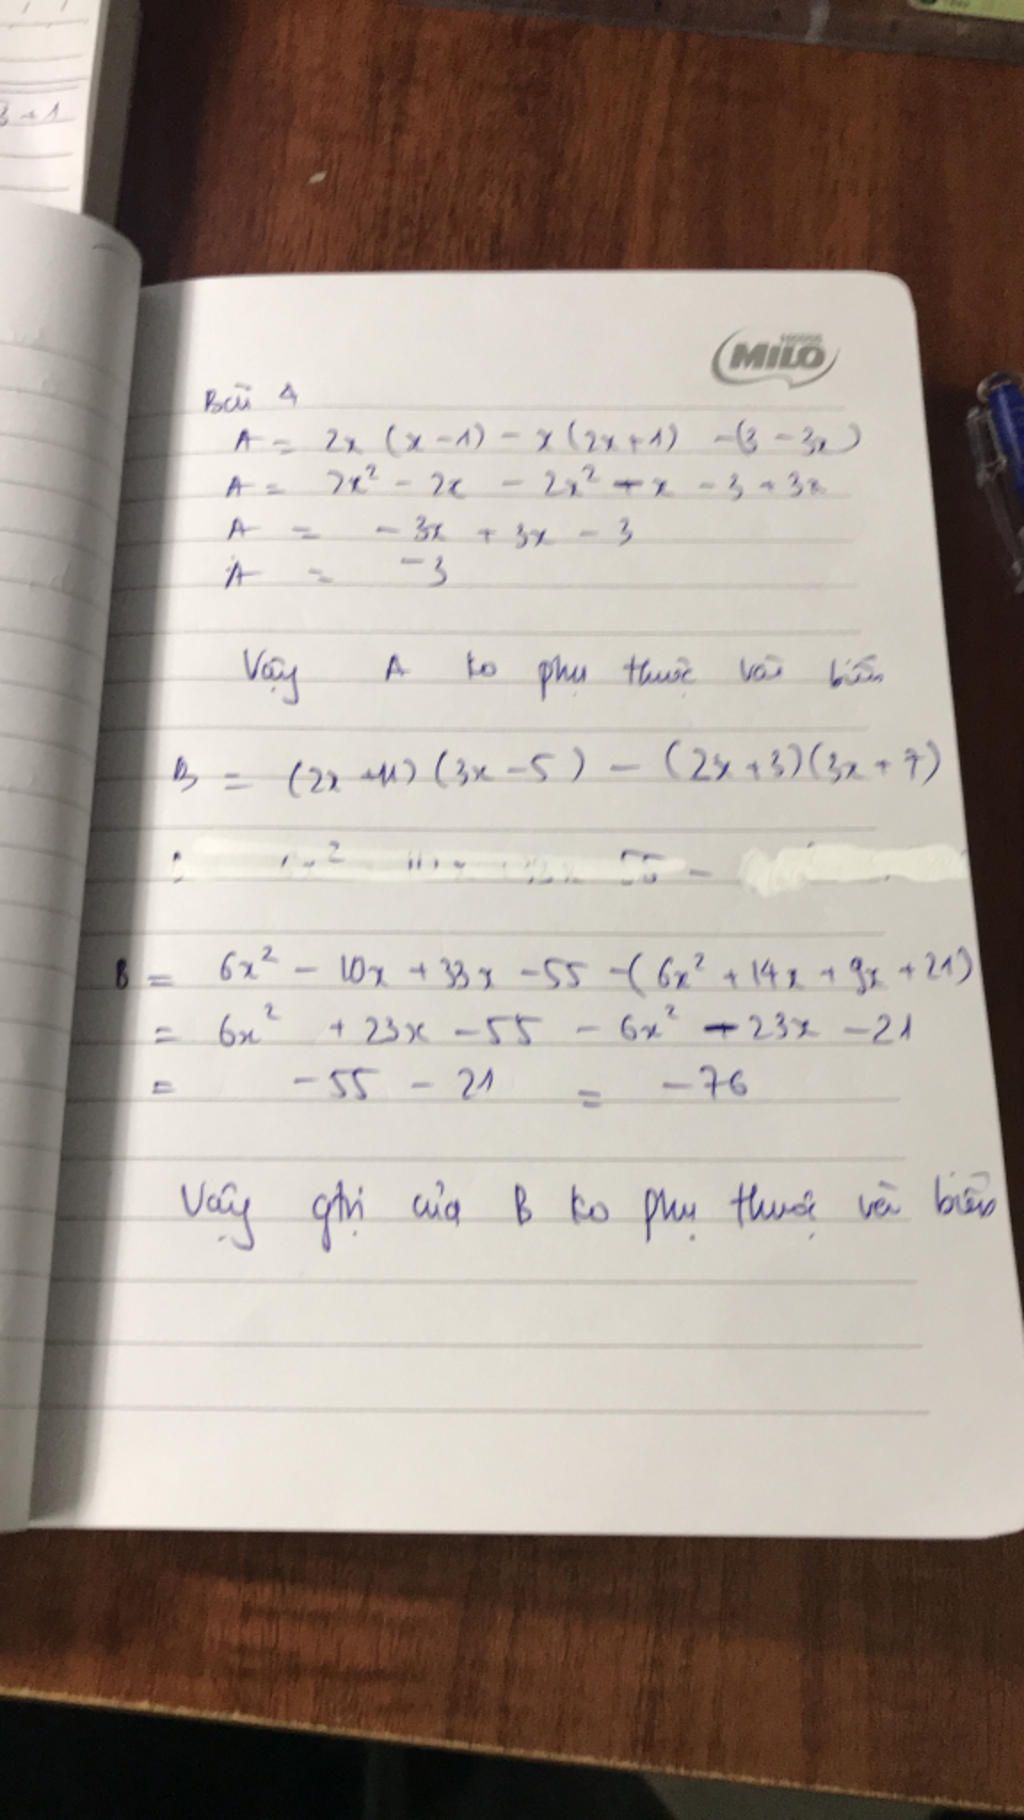 3 + 1
MILO
Bài 4
A = 2x (x - 1) - x (2x + 1) - (3 - 3x)
A = 2x² - 2x - 2x² - x - 3 + 3x
A = - 3x + 3x - 3
A = - 3
Vậy A ko phụ thuộc vào biến
B = (2x + 11) (3x - 5) - (2x + 3) (3x + 7)
B = 6x² - 10x + 33x - 55 - (6x² + 14x + 9x + 21)
= 6x² + 23x - 55 - 6x² - 23x - 21
= - 55 - 21 = - 76
Vậy gtrị của B ko phụ thuộc vào biến